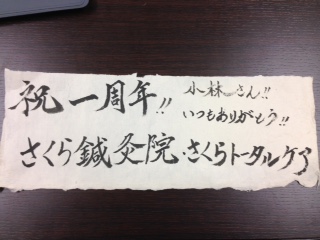 祝一周年!!
小林さん!!
いつもありがとう!!
さくら鍼灸院・さくらトータルケア